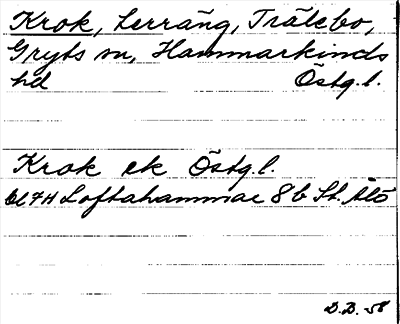 Krok, Lerräng, Trälebo,
Gryts sn, Hammarkinds
hd Östg.l.
Krok ek Östg.l.
bl 7H Loftahammar 8b St. Ålö
D.D. -58